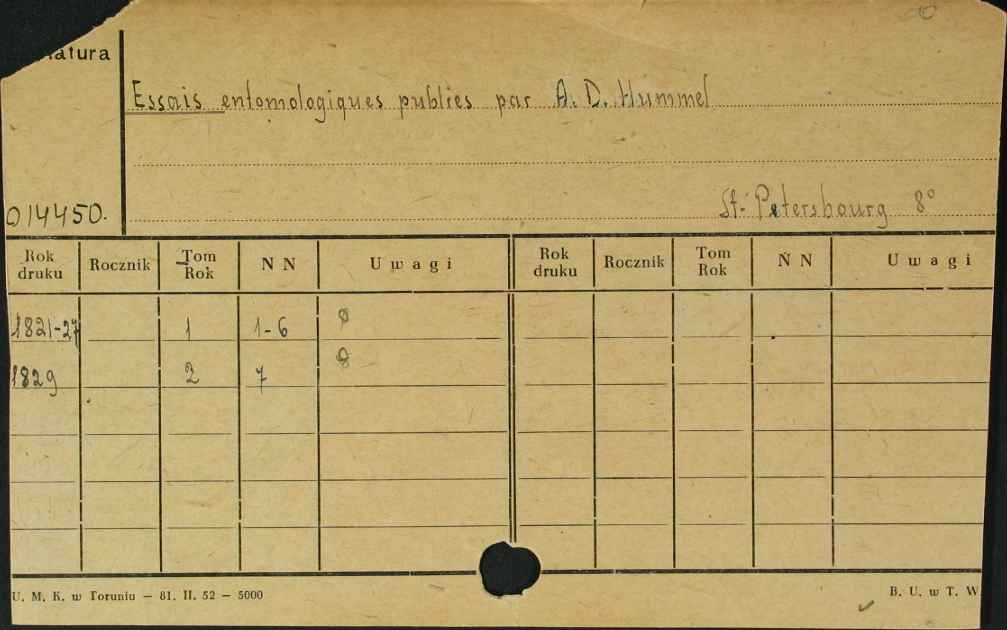 atura
Essais entomologiques publiés par A. D. Hummel
014450.
St. Petersbourg 8°
Rok druku Rocznik Tom Rok N N Uwagi Rok druku Rocznik Tom Rok N N Uwagi
1821-27 1 1-6
1829 2 7
U. M. K. w Toruniu — 81. II. 52 — 5000
B. U. w T. W